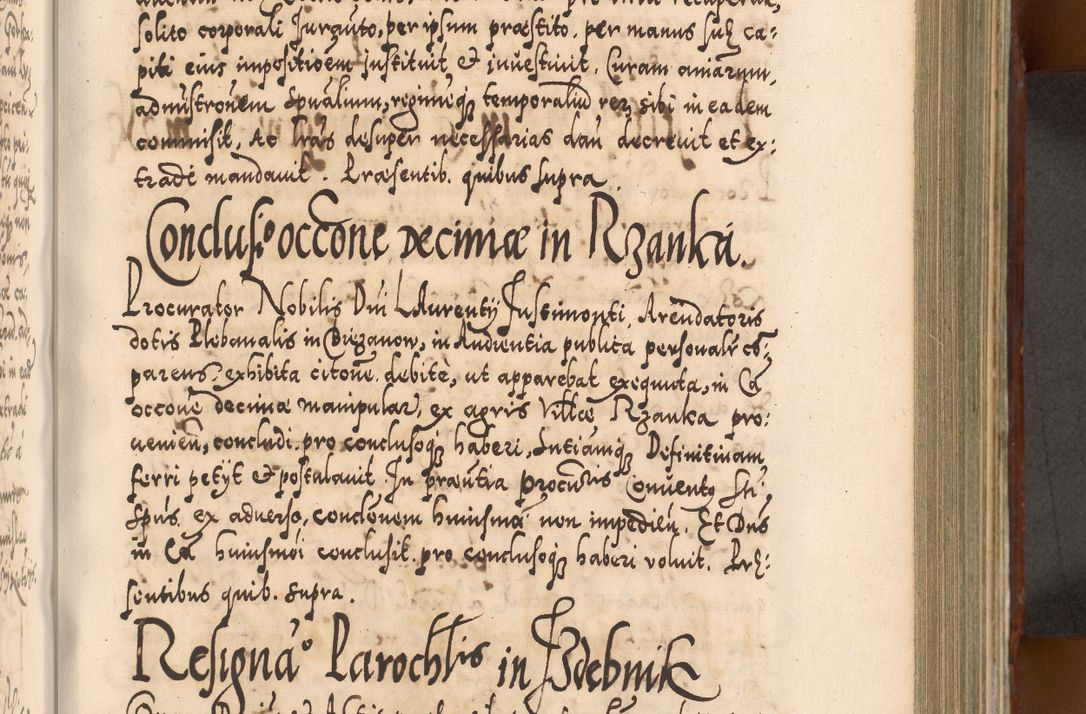 solito corporali Juramto, per ipsum præstito, per manus suæ ca:
piti eius impositioem instituit et inuestiuit. Curam aniarum,
admistronem spualium, regimiq; temporaliũ reꝝ sibi in eadem
commisit, Ac lras desuper necessarias dari decreuit et ex:
tradi mandauit. Præsentib. quibus supra.
Conclusio occone decimæ in Rzanka.
Procurator Nobilis Dni Laurentij Justimonti, Arendatoris
dotis Plebanalis in Brzezanow, in Audientia publica personalr co:
parens, exhibita citone debite, ut apparebat exequuta, in Ca
occone decimæ manipular, ex agris Villæ Rzanka pro:
venien, concludi pro conclusoq; haberi, sntiamq; Definitiuam
ferri petyt et postulauit. In præntia procuris Conuentq Sti
Spus ex aduerso, conclonem huiusmoi non impedien. Et Dns
in Ca huiusmoi conclusit pro conclusoq; haberi voluit. Præ:
sentibus quib. supra.
Resignao Parochlis in Izdebnik